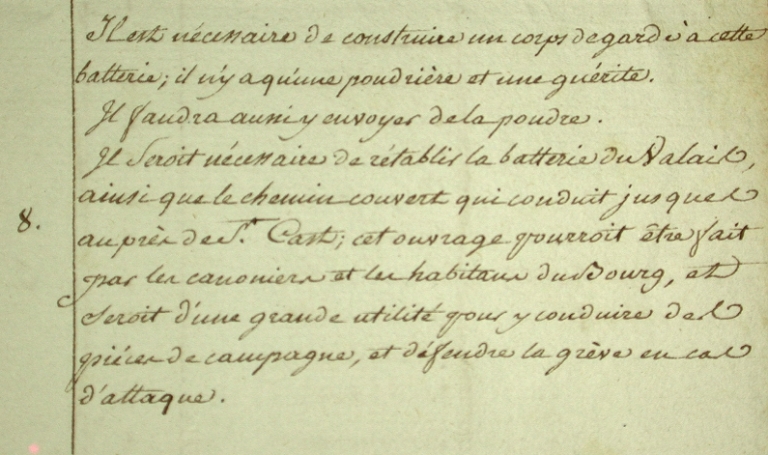 Il est nécessaire de construire un corps de garde à cette
batterie; il n'y a qu'une poudrière et une guérite.
Il faudra aussi y envoyer de la poudre.
Il Seroit nécessaire de rétablir la batterie du Valais,
ainsi que le chemin couvert qui conduit jusques
8. auprès de St. Cast; cet ouvrage pourroit être fait
par les canoniers et les habitans du Bourg, et
Seroit d'une grande utilité pour y conduire des
pièces de campagne, et défendre la grève en cas
d'attaque.